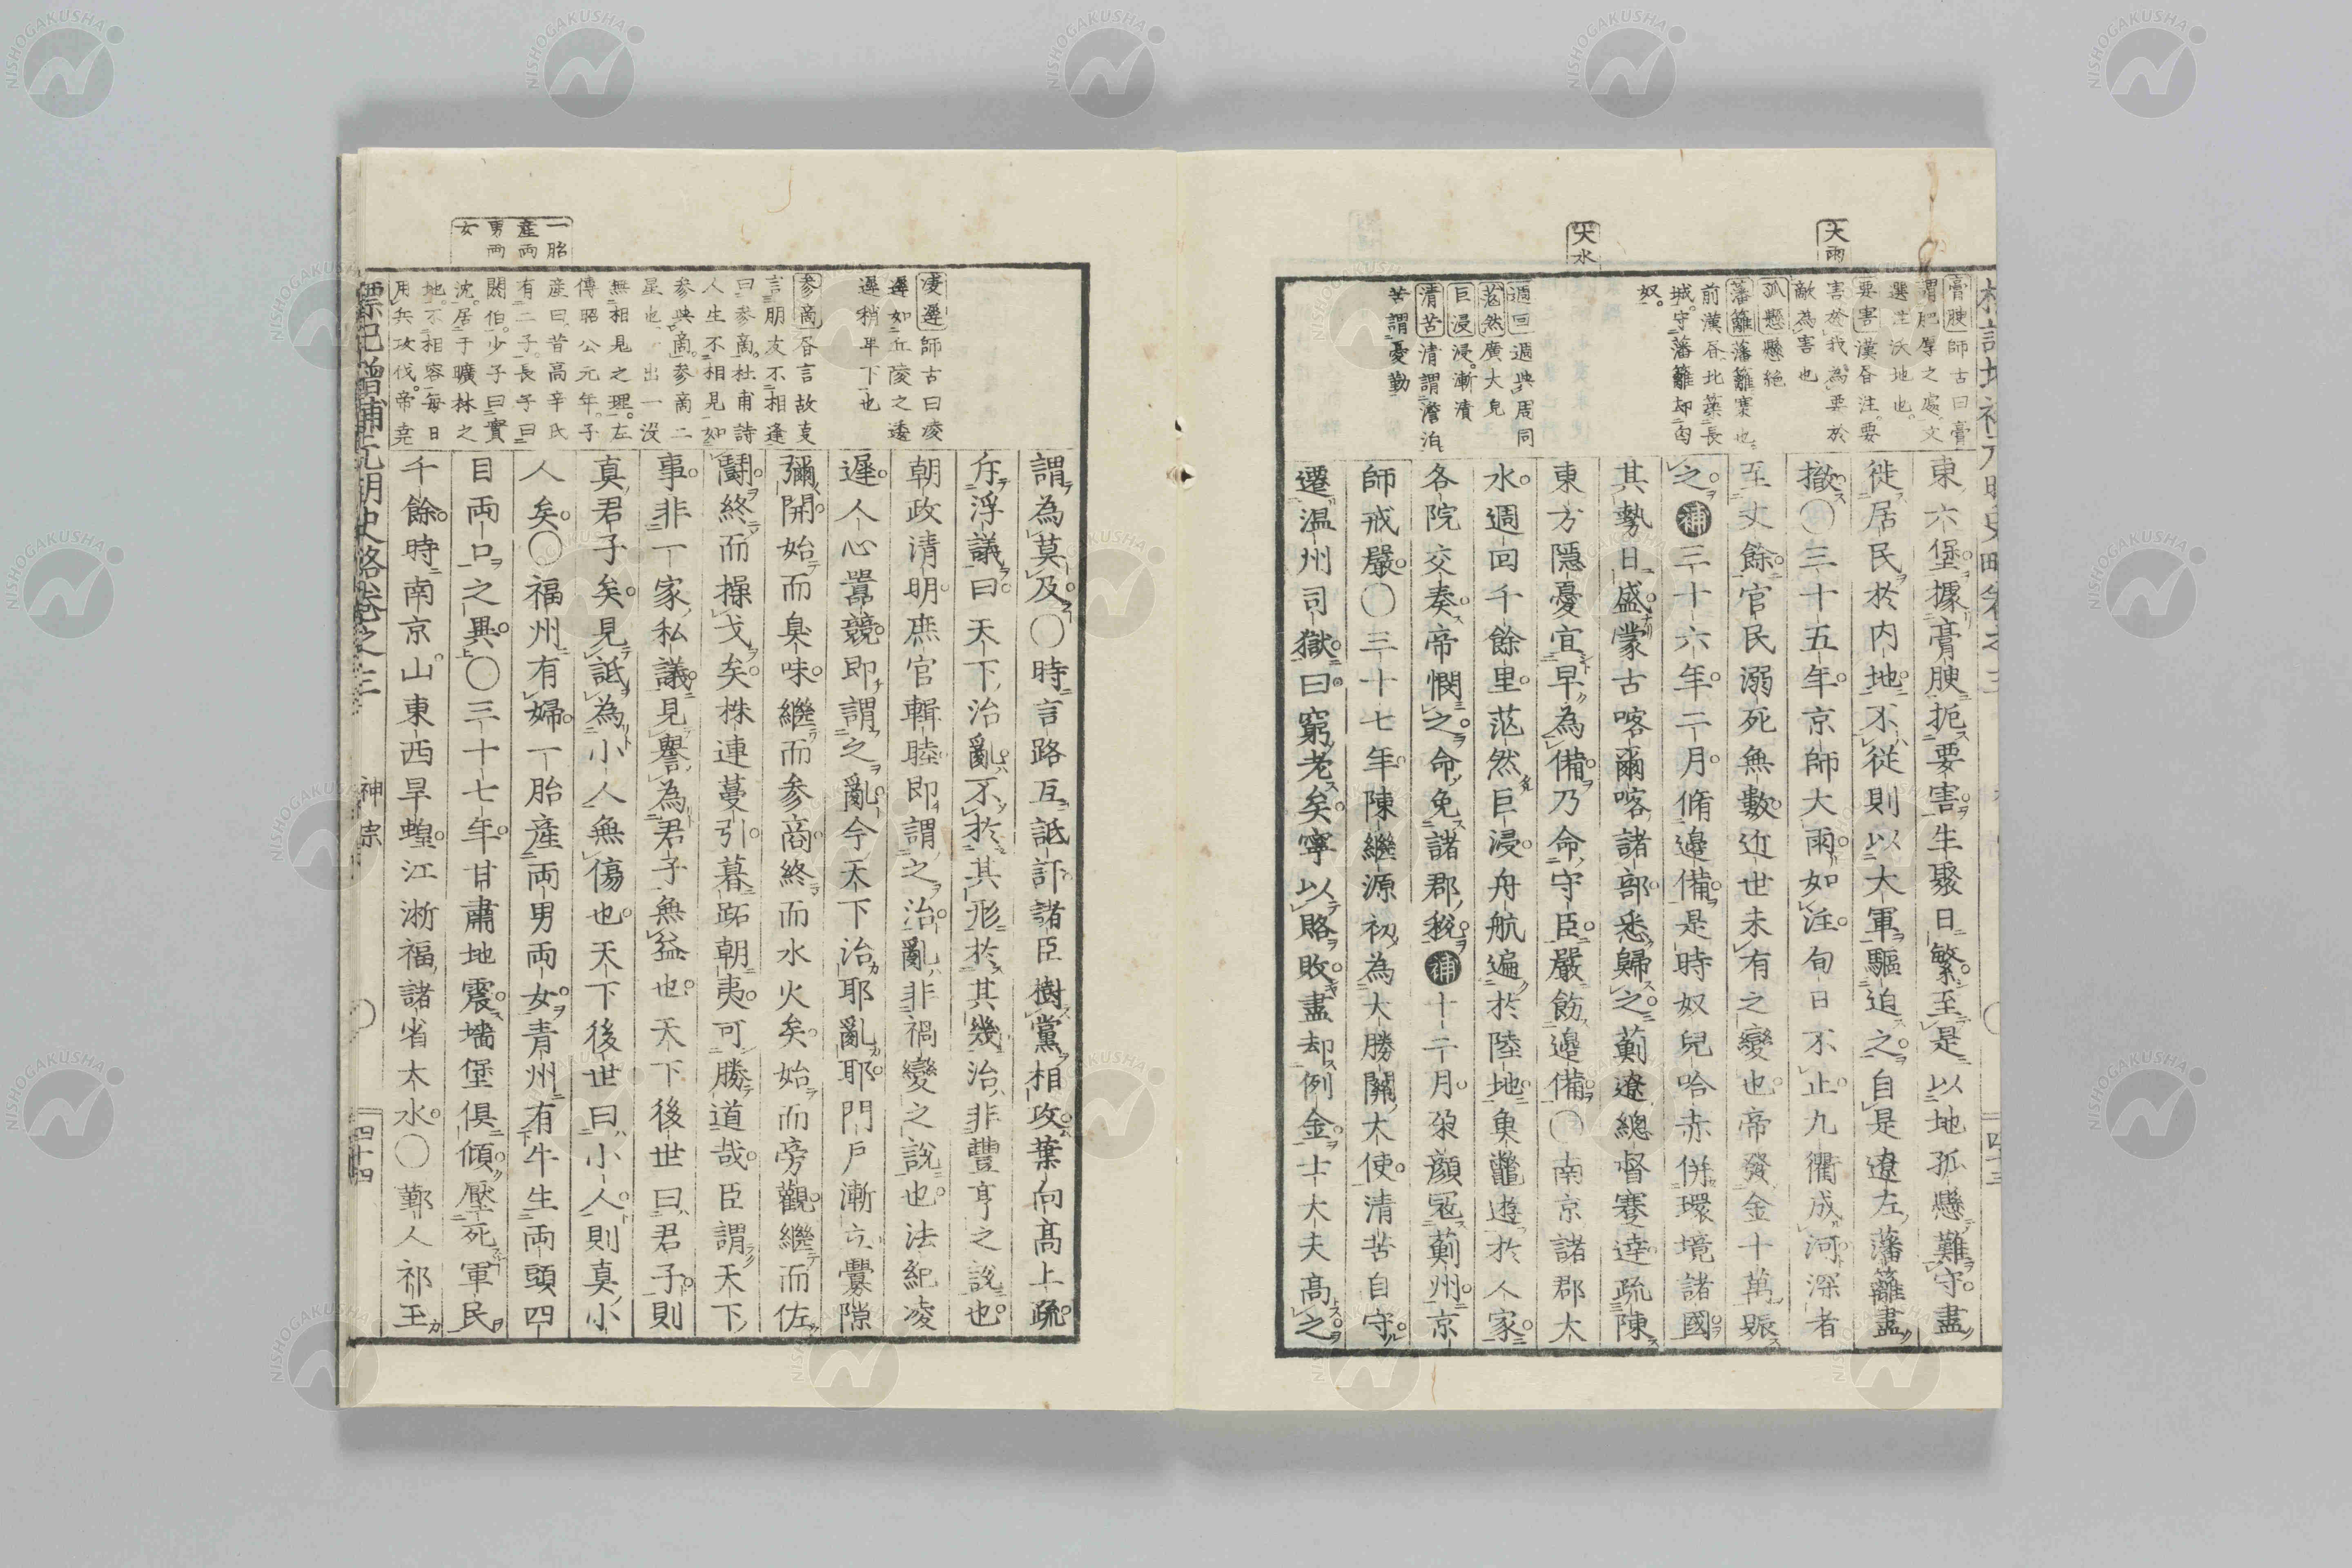 大雨
大水
膏腴師古曰膏
謂肥厚之處文
選注沃地也
要害漢書注要
害於我為要於
敵為害也
孤懸懸絕
藩籬藩籬寨也
前漢書北築長
城守藩籬却匈
奴
週回週與周同
茫然廣大皃
巨浸浸漸漬
清苦清謂澹泊
苦謂憂勤
東六堡據膏腴扼要害生聚日繁至是以地孤懸難守盡
徙居民於内地不從則以大軍驅迫之自是遼左藩籬盡
撤〇三十五年京師大雨如注旬日不止九衢成河深者
至丈餘官民溺死無數近世未有之變也帝發金十萬賑
之補三十六年二月脩邊備是時奴兒哈赤併環境諸國
其勢日盛蒙古喀爾喀諸部悉歸之薊遼總督蹇達疏陳
東方隱憂宜早為備乃命守臣嚴飭邊備〇南京諸郡大
水週回千餘里茫然巨浸舟航遍於陸地魚鼈遊於人家
各院交奏帝憫之命免諸郡稅補十二月朶顔冦薊州京
師戒嚴〇三十七年陳繼源初為大勝關大使清苦自守
遷温州司獄曰窮老矣寧以賂敗盡却例金士大夫高之
一胎
産両
男両
女
凌遲師古曰凌
遲如丘陵之逶
遲稍卑下也
参商吾言故支
言朋友不相逢
曰参商杜甫詩
人生不相見如
参與商参商二
星也出一沒
無相見之理左
傳昭公元年子
産曰昔高辛氏
有二子長子曰
閼伯少子曰實
沈居于曠林之
地不相容每日
用兵攻伐帝堯
謂為莫及〇時言路互詆訐諸臣樹黨相攻葉向高上疏
斥浮議曰天下治亂不於其形於其幾治非豐亨之說也
朝政清明庶官輯睦即謂之治亂非禍變之說也法紀凌
遲人心囂競即謂之亂今天下治耶亂耶門戸漸立釁隙
彌開始而臭味繼而参商終而水火矣始而旁觀繼而佐
鬪終而操戈矣株連蔓引暮跖朝夷可勝道哉臣謂天下
事非一家私議見譽為君子無益也天下後世曰君子則
真君子矣見詆為小人無傷也天下後世曰小人則真小
人矣〇福州有婦一胎産両男両女青州有牛生両頭四
目両口之異〇三十七年甘肅地震墻堡倶傾壓死軍民
千餘時南京山東西旱蝗江浙福諸省大水〇鄞人祁王
標記增補元明史略卷之三
神宗
四十四